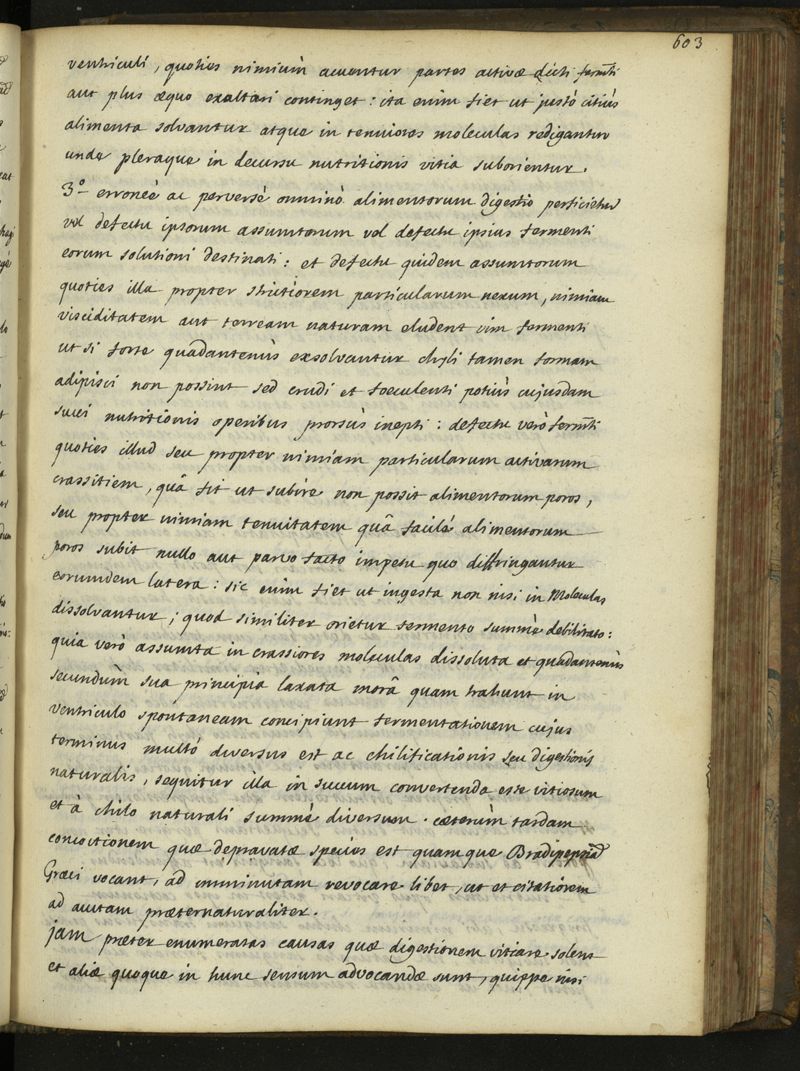 603
ventriculi, quoties nimiùm acuuntur partes activæ dicti ferm̃ti
aut plus æquo exaltari continget : ita enim fiet ut justò citiùs
alimenta solvantur atque in tenuiores moleculas redigantur
unde pleraque in decursu nutritionis vitia suborientur.
3º erroneè ac perversè omninò alimentorum digestio perficietur
vel defectu ipsorum assumtorum vel defectu ipsius fermenti
eorum solutioni destinati : et defectu quidem assumtorum
quoties illa propter strictiorem particularum nexum, nimiam
visciditatem aut terream naturam eludent vim fermenti
ut si forte quadantenùs exsolvantur chyli tamen formam
adipisci non possint sed crudi et foeculenti potiùs cujusdam
succi nutritionis operibus prorsùs inepti : defectu verò ferm̃ti
quoties illud seu propter nimiam particularum activarum
crassitiem, quâ fit ut subire non possit alimentorum poros,
seu propter nimiam tenuitatem quâ facilè alimentorum
poros subit nullo aut parvo facto impetu quo diffringantur
eorumdem latera : sic enim fiet ut ingesta non nisi in Moleculas
dissolvantur ; quod similiter orietur fermento summè debilitato :
quia verò assumta in crassiores moleculas dissoluta et quadantenùs
secundùm sua principia laxata morâ quam trahunt in
ventriculo spontaneam concipiunt fermentationem cujus
terminus multò diversus est ac chilificationis seu digestionis
naturalis, sequitur illa in succum convertenda esse vitiosum
et à chilo naturali summè diversum. cæterùm tardam
concoctionem quæ depravatæ species est quamque Bradipepsiam
Græci vocant, ad imminutam revocare libet, ut et citatiorem
ad auctam præternaturaliter.
jam præter enumeratas causas quæ digestionem vitiare solent
et aliæ quoque in hunc sensum advocandæ sunt, quippe nisi